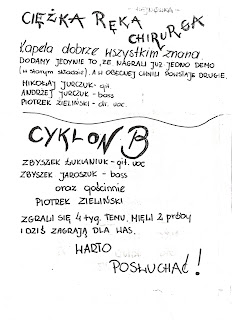 CIĘŻKA RĘKA CHIRURGA
Kapela dobrze wszystkim znana
DODAMY JEDYNIE TO, ŻE NAGRALI JUŻ JEDNO DEMO
(w starym składzie). A W OBECNEJ CHWILI POWSTAJE DRUGIE.
MIKOŁAJ JURCZUK - git.
ANDRZEJ JURCZUK - bass
PIOTREK ZIELIŃSKI - dr. voc
CYKLON B
ZBYSZEK ŁUKIANIUK - git. voc
ZBYSZEK JAROSZUK - bass
oraz gościnnie
PIOTREK ZIELIŃSKI
ZGRALI SIĘ 4 tyg. TEMU, MIELI 2 próby
I DZIŚ ZAGRAJĄ DLA WAS.
WARTO
POSŁUCHAĆ!